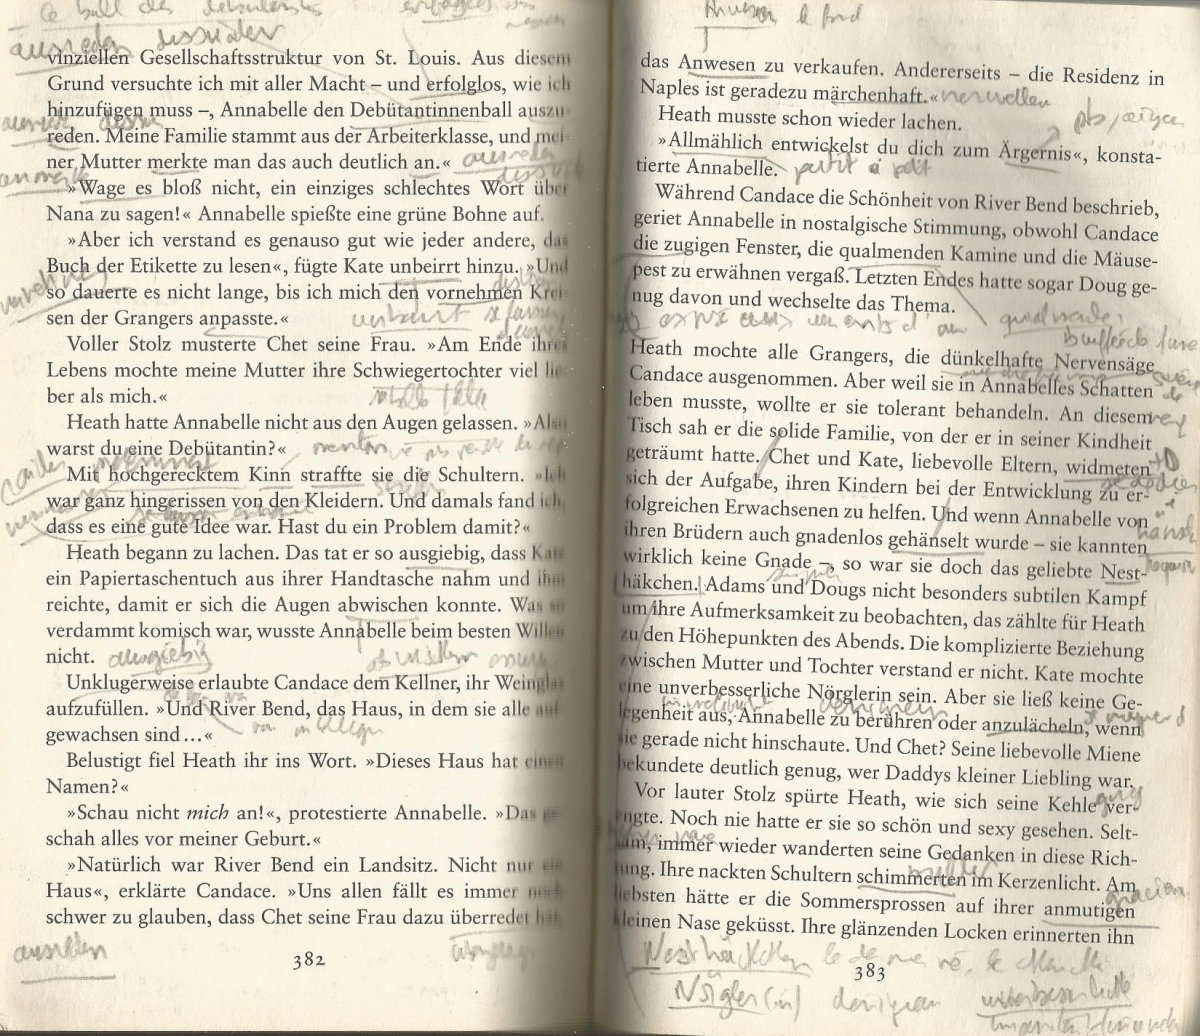 vinziellen Gesellschaftsstruktur von St. Louis. Aus diesem
Grund versuchte ich mit aller Macht – und erfolglos, wie ich
hinzufügen muss –, Annabelle den Debütantinnenball auszu-
reden. Meine Familie stammt aus der Arbeiterklasse, und mei-
ner Mutter merkte man das auch deutlich an.«
»Wage es bloß nicht, ein einziges schlechtes Wort über
Nana zu sagen!« Annabelle spießte eine grüne Bohne auf.
»Aber ich verstand es genauso gut wie jeder andere, das
Buch der Etikette zu lesen«, fügte Kate unbeirrt hinzu. »Und
so dauerte es nicht lange, bis ich mich den vornehmen Krei-
sen der Grangers anpasste.«
Voller Stolz musterte Chet seine Frau. »Am Ende ihres
Lebens mochte meine Mutter ihre Schwiegertochter viel lie-
ber als mich.«
Heath hatte Annabelle nicht aus den Augen gelassen. »Also
warst du eine Debütantin?«
Mit hochgerecktem Kinn straffte sie die Schultern. »Ich
war ganz hingerissen von den Kleidern. Und damals fand ich,
dass es eine gute Idee war. Hast du ein Problem damit?«
Heath begann zu lachen. Das tat er so ausgiebig, dass Kate
ein Papiertaschentuch aus ihrer Handtasche nahm und ihm
reichte, damit er sich die Augen abwischen konnte. Was so
verdammt komisch war, wusste Annabelle beim besten Willen
nicht. ausgiebig
Unklugerweise erlaubte Candace dem Kellner, ihr Weinglas
aufzufüllen. »Und River Bend, das Haus, in dem sie alle auf-
gewachsen sind …«
Belustigt fiel Heath ihr ins Wort. »Dieses Haus hat einen
Namen?«
»Schau nicht mich an!«, protestierte Annabelle. »Das ge-
schah alles vor meiner Geburt.«
»Natürlich war River Bend ein Landsitz. Nicht nur ein
Haus«, erklärte Candace. »Uns allen fällt es immer noch
schwer zu glauben, dass Chet seine Frau dazu überredet hat,
382
das Anwesen zu verkaufen. Andererseits – die Residenz in
Naples ist geradezu märchenhaft.«
Heath musste schon wieder lachen.
»Allmählich entwickelst du dich zum Ärgernis«, konsta-
tierte Annabelle.
Während Candace die Schönheit von River Bend beschrieb,
geriet Annabelle in nostalgische Stimmung, obwohl Candace
die zugigen Fenster, die qualmenden Kamine und die Mäuse-
pest zu erwähnen vergaß. Letzten Endes hatte sogar Doug ge-
nug davon und wechselte das Thema.
Heath mochte alle Grangers, die dünkelhafte Nervensäge
Candace ausgenommen. Aber weil sie in Annabelles Schatten
leben musste, wollte er sie tolerant behandeln. An diesem
Tisch sah er die solide Familie, von der er in seiner Kindheit
geträumt hatte. Chet und Kate, liebevolle Eltern, widmeten
sich der Aufgabe, ihren Kindern bei der Entwicklung zu er-
folgreichen Erwachsenen zu helfen. Und wenn Annabelle von
ihren Brüdern auch gnadenlos gehänselt wurde – sie kannten
wirklich keine Gnade –, so war sie doch das geliebte Nest-
häkchen. Adams und Dougs nicht besonders subtilen Kampf
um ihre Aufmerksamkeit zu beobachten, das zählte für Heath
zu den Höhepunkten des Abends. Die komplizierte Beziehung
zwischen Mutter und Tochter verstand er nicht. Kate mochte
eine unverbesserliche Nörglerin sein. Aber sie ließ keine Ge-
legenheit aus, Annabelle zu berühren oder anzulächeln, wenn
sie gerade nicht hinschaute. Und Chet? Seine liebevolle Miene
bekundete deutlich genug, wer Daddys kleiner Liebling war.
Vor lauter Stolz spürte Heath, wie sich seine Kehle ver-
engte. Noch nie hatte er sie so schön und sexy gesehen. Selt-
sam, immer wieder wanderten seine Gedanken in diese Rich-
tung. Ihre nackten Schultern schimmerten im Kerzenlicht. Am
liebsten hätte er die Sommersprossen auf ihrer anmutigen
kleinen Nase geküsst. Ihre glänzenden Locken erinnerten ihn
383
Nesthäkchen
Nörgler(in)